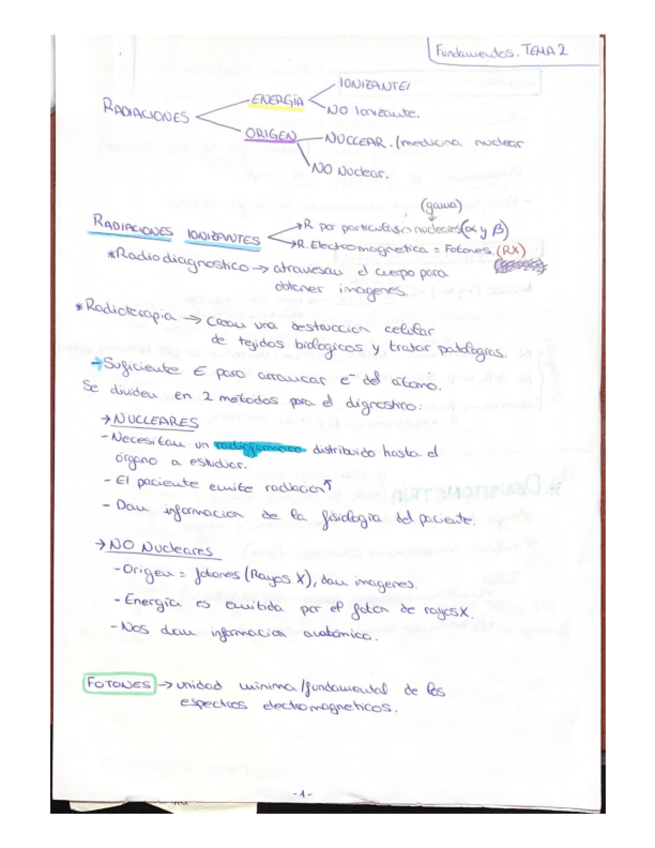 Fundamentos. TEMA 2
IONIZANTE
ENERGÍA
RADIACIONES
NO Ionizante.
ORIGEN
NUCLEAR. (medicina nuclear
NO Nuclear.
(gama)
RADIACIONES IONIZANTES
→R por particulas nucleares (α y β)
→R. Electromagnetica = Fotones. (RX)
*Radiodiagnostico → atraviesan el cuerpo para
obtener imagenes.
*Radioterapia → Crean una destruccion celular
de tejidos biologicos y tratar patologías.
→Suficiente E para arrancar e⁻ del atomo.
Se dividen en 2 metodos para el dignostico:
→ NUCLEARES
- Necesitan un radiofarmaco distribuido hasta el
órgano a estudiar.
- El paciente emite radiacion
- Dan informacion de la fisiología del paciente.
→ NO Nucleares
- Origen = fotones (Rayos X), dan imagenes.
- Energía es emitida por el foton de rayos X.
- Nos dan informacion anatómica.
FOTONES → unidad minima/fundamental de los
espectros electromagneticos.
-1-